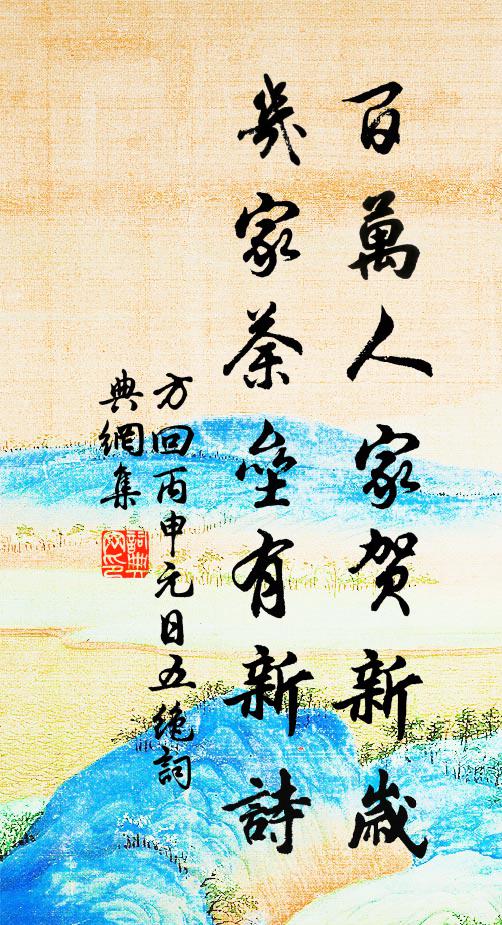 百萬人家賀新歲
幾家荼壘有新詩
方回丙申元日五絶詞
典網集
詞典網印